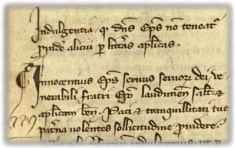 Indulgentia q̄ dn̄s Ep̄s non teneat᷑
ꝓuidē alicui ꝑ litt̄as aplicas
Innocentius Ep̄s seruus seruoꝝ dei ve
nerabili fratri Ep̄o laudunen̄ salt̄ &
aplicam ben̄. Paci & tranquillitati tue
pat̄na volentes sollicitudine ꝓuidere.